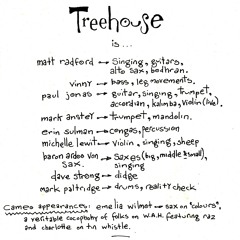 Treehouse
is...
matt radford → Singing, guitars,
alto sax, bodhran.
vinny → bass, leg movements.
paul jonas → guitar, singing, trumpet,
accordian, kalimba, violin (live).
mark anster → trumpet, mandolin.
erin sulman → congas, percussion
michelle lewit → violin, singing, sheep
baron ardo von → saxes (big, middle & small),
sax. singing
dave strong → didge
mark paltridge → drums, reality check.
cameo appearances: emelia wilmot → sax on "colours",
a veritable cacophony of folks on W.A.H. featuring naz
and charlotte on tin whistle.